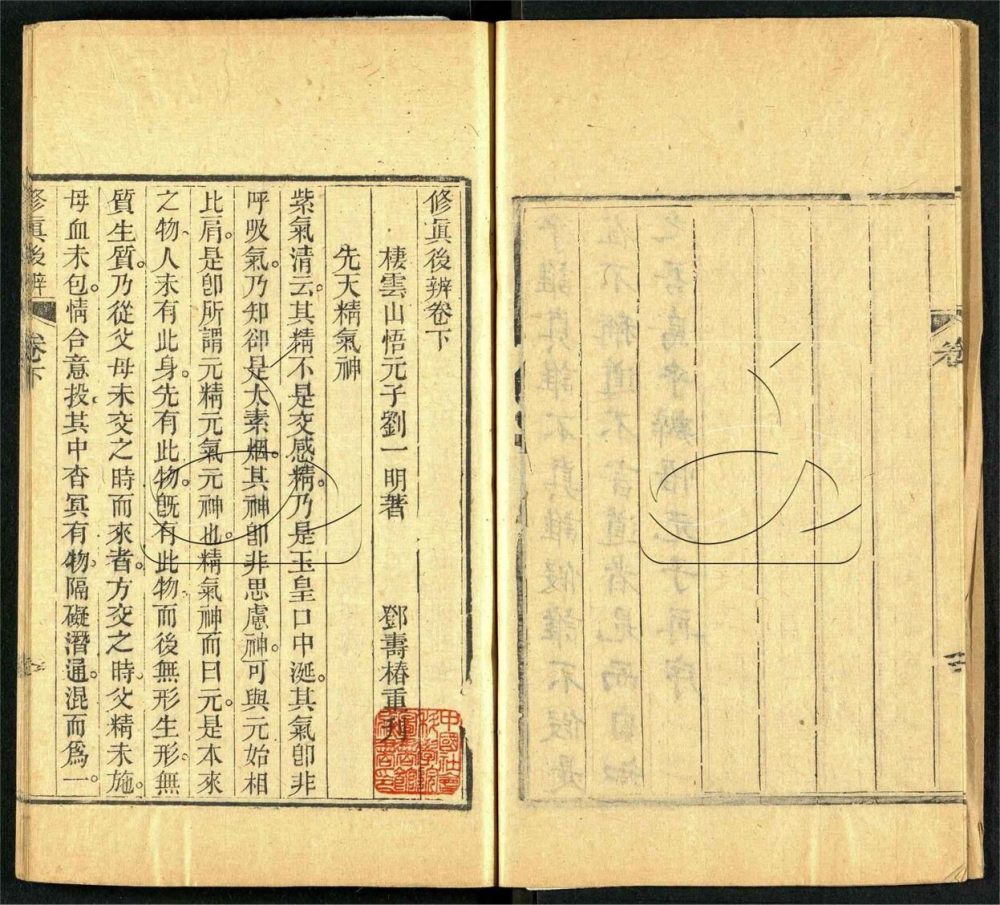 修眞後辨卷下
棲雲山悟元子劉一明著 鄧壽椿重刋
先天精氣神
紫氣清云其精不是交感精乃是玉皇口中涎其氣卽非
呼吸氣乃知卻是太素烟其神卽非思慮神可與元始相
比肩是卽所謂元精元氣元神也精氣神而曰元是本來
之物人未有此身先有此物旣有此物而後無形生形無
質生質乃從父母未交之時而來者方交之時父精未施
母血未包情合意投其中杳冥有物隔礙潛通混而爲一
修眞後辨 卷下